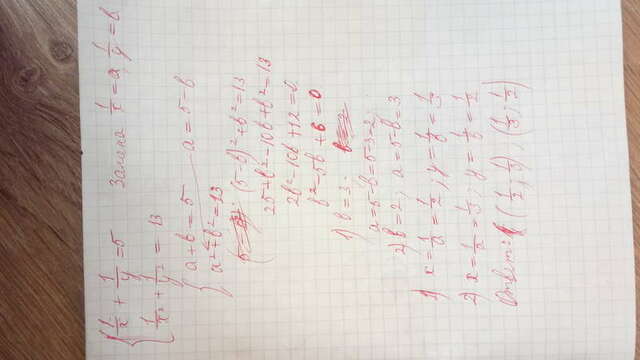 1/x + 1/y = 5   Замена 1/x = a, 1/y = b
1/x² + 1/y² = 13
a + b = 5   a = 5 - b
a² + b² = 13
(5 - b)² + b² = 13
25 + b² - 10b + b² = 13
2b² - 10b + 12 = 0
b² - 5b + 6 = 0
1) b = 3.
a = 5 - b = 5 - 3 = 2
2) b = 2, a = 5 - b = 3
1) x = 1/a = 1/2, y = 1/b = 1/3
2) x = 1/a = 1/3, y = 1/b = 1/2
Ответ: (1/2; 1/3), (1/3; 1/2)